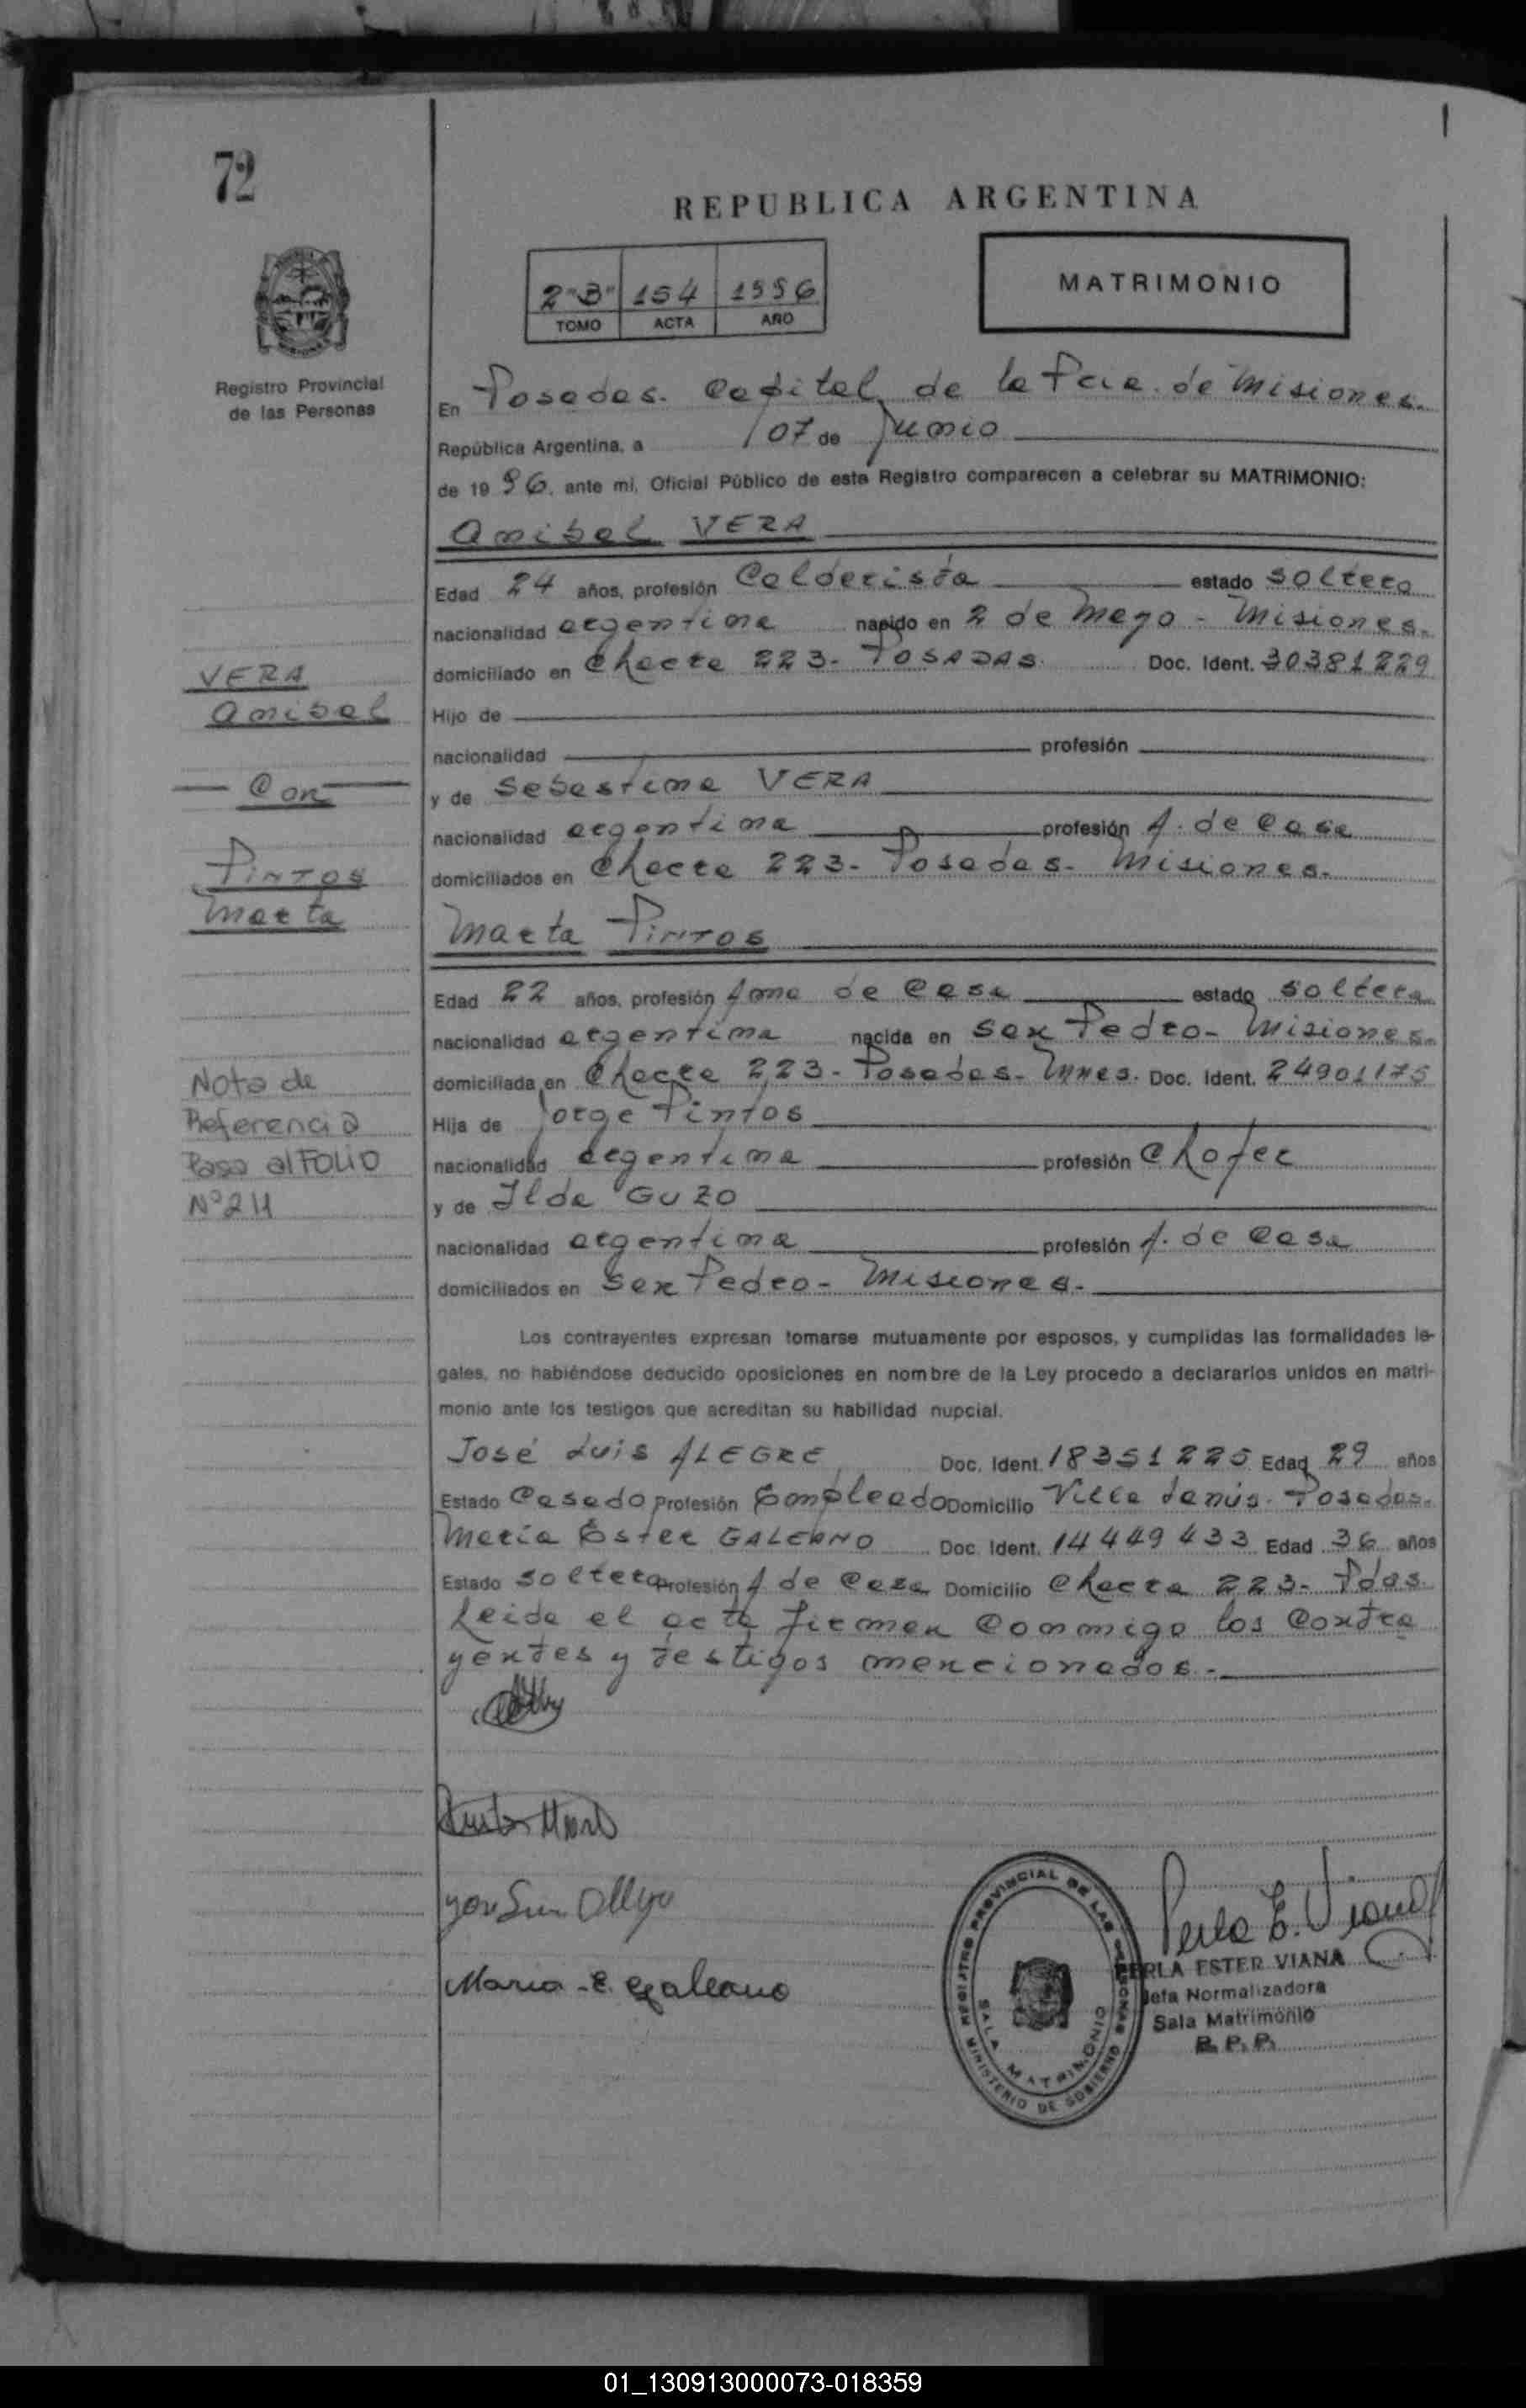 72
REPUBLICA ARGENTINA
2"B" 154 1996
TOMO ACTA AÑO
MATRIMONIO
Registro Provincial
de las Personas
En Posadas. Capital de la Pcia. de Misiones.
República Argentina, a 07 de Junio
de 1996, ante mi, Oficial Público de este Registro comparecen a celebrar su MATRIMONIO:
Anibal VERA
Edad 24 años, profesión Calderista estado soltero
nacionalidad argentina nacido en 2 de Mayo - Misiones.
domiciliado en Chacra 223. POSADAS. Doc. Ident. 30381229
Hijo de
nacionalidad profesión
y de Sebastiana VERA
nacionalidad argentina profesión A. de Casa
domiciliados en Chacra 223- Posadas- Misiones.
Marta PINTOS
Edad 22 años, profesión Ama de Casa estado soltera
nacionalidad argentina nacida en San Pedro- Misiones.
domiciliada en Chacra 223- Posadas- Mnes. Doc. Ident. 24901175
Hija de Jorge Pintos
nacionalidad argentina profesión Chofer
y de Ilda GUZO
nacionalidad argentina profesión A. de Casa
domiciliados en San Pedro- Misiones.
VERA
Anibal
Con
PINTOS
Marta
Nota de
Referencia
Pasa al FOLIO
Nº 211
Los contrayentes expresan tomarse mutuamente por esposos, y cumplidas las formalidades le-
gales, no habiéndose deducido oposiciones en nombre de la Ley procedo a declararlos unidos en matri-
monio ante los testigos que acreditan su habilidad nupcial.
José Luis ALEGRE Doc. Ident. 18351225 Edad 29 años
Estado Casado Profesión Empleado Domicilio Villa Lanús. Posadas.
María Ester GALEANO Doc. Ident. 14449433 Edad 36 años
Estado soltera Profesión A. de Casa Domicilio Chacra 223- Pdas.
Leida el acta firman conmigo los contra
yentes y testigos mencionados.-
Maria E. Galeano
REGISTRO PROVINCIAL DE LAS PERSONAS
SALA MATRIMONIO
MINISTERIO DE GOBIERNO
Perla E. Viana
PERLA ESTER VIANA
Jefa Normalizadora
Sala Matrimonio
R. P. P.
01_130913000073-018359